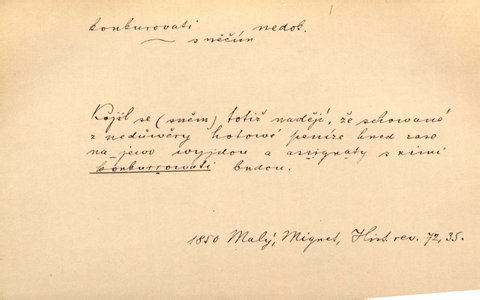 konkurovati nedok.
s něčím
Kojil se (sněm) totiž nadějí, že schované
z nedůwěry hotowé peníze hned zase
na jewo wyjdou a assignáty s nimi
konkurrowati budou.
1850 Malý, Mignet, Hist. rev. 72, 35.